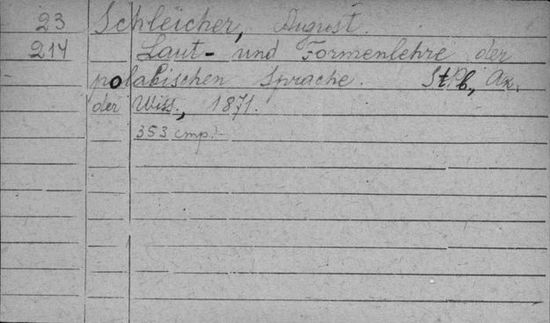 23 Schleicher, August.
214 Laut- und Formenlehre der
polabischen Sprache. StPb., Ak.
der Wiss., 1871.
353 стр.